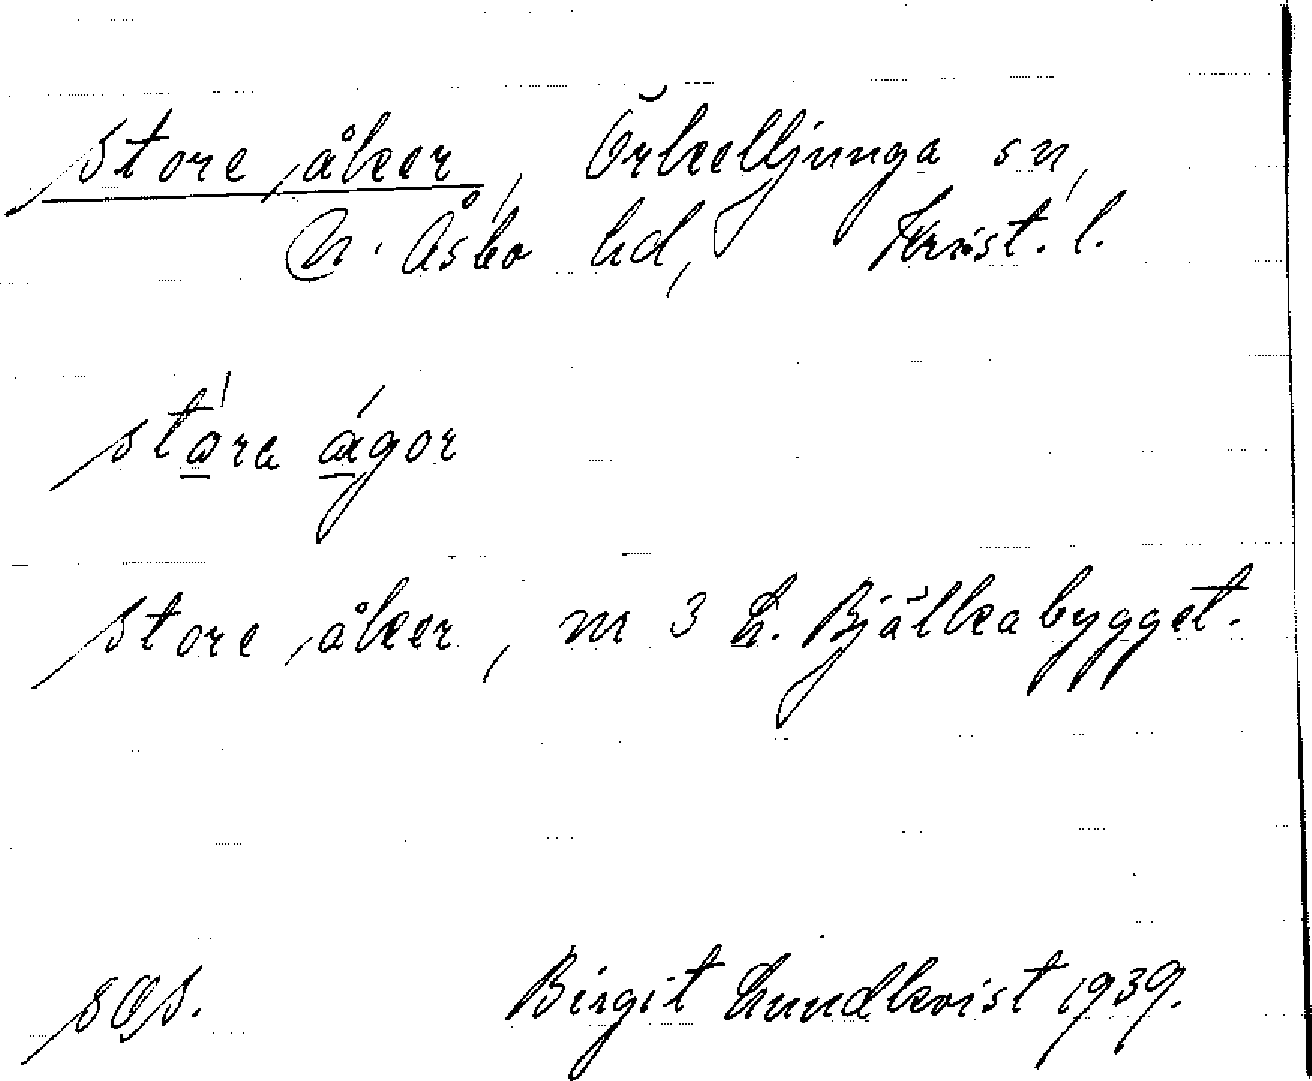 store åker, Örkelljunga sn,
N. Åsbo hd, Krist. l.
stára ágor
store åker, m 3 L. Bjälkabygget.
sas. Birgit Lundkvist 1939.